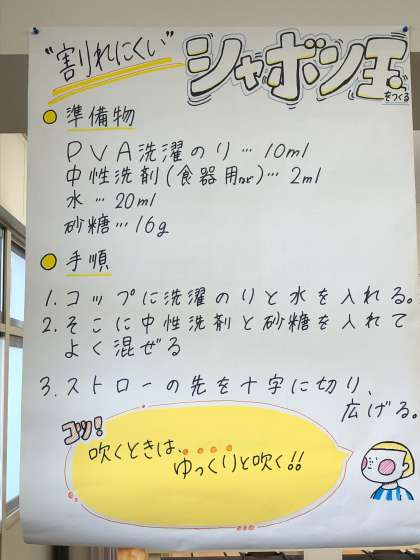 "割れにくい" シャボン玉をつくる
準備物
PVA洗濯のり…10ml
中性洗剤(食器用など)…2ml
水…20ml
砂糖…16g
手順
1. コップに洗濯のりと水を入れる。
2. そこに中性洗剤と砂糖を入れて
よく混ぜる
3. ストローの先を十字に切り、
広げる。
コツ!
吹くときは、
ゆっくりと吹く!!